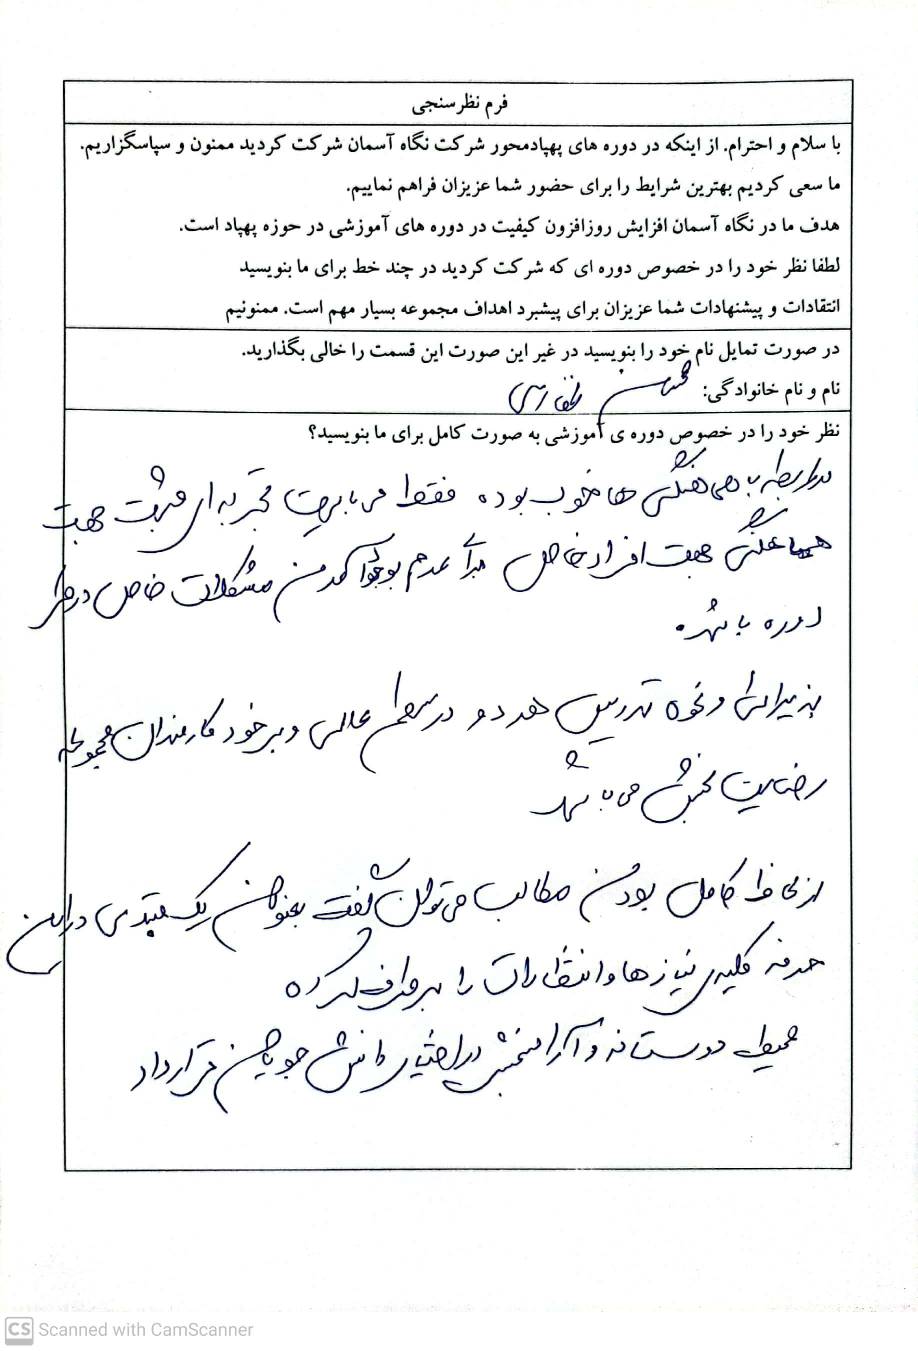 فرم نظرسنجی
با سلام و احترام. از اینکه در دوره های پهپادمحور شرکت نگاه آسمان شرکت کردید ممنون و سپاسگزاریم.
ما سعی کردیم بهترین شرایط را برای حضور شما عزیزان فراهم نماییم.
هدف ما در نگاه آسمان افزایش روزافزون کیفیت در دوره های آموزشی در حوزه پهپاد است.
لطفا نظر خود را در خصوص دوره ای که شرکت کردید در چند خط برای ما بنویسید
انتقادات و پیشنهادات شما عزیزان برای پیشبرد اهداف مجموعه بسیار مهم است. ممنونیم
در صورت تمایل نام خود را بنویسید در غیر این صورت این قسمت را خالی بگذارید.
نام و نام خانوادگی:
نظر خود را در خصوص دوره ی آموزشی به صورت کامل برای ما بنویسید؟
در رابطه با هماهنگی ها خوب بوده فقط می بایست تجربه ای مثبت جهت
هماهنگی جهت افراد خاص برای عدم بوجود آمدن مشکلات خاص در طی
دوره باشد.
پذیرایی و نحوه تدریس هر دو در سطح عالی و برخورد کارمندان مجموعه
رضایت بخش می باشد
از لحاظ کامل بودن مطالب می توان گفت بعنوان یک مبتدی در این
حرفه کلیه ی نیازها و انتظارات را برطرف کرده
محیط دوستانه و آرامبخشی در اختیار دانش جویان قرار داد
CS Scanned with CamScanner